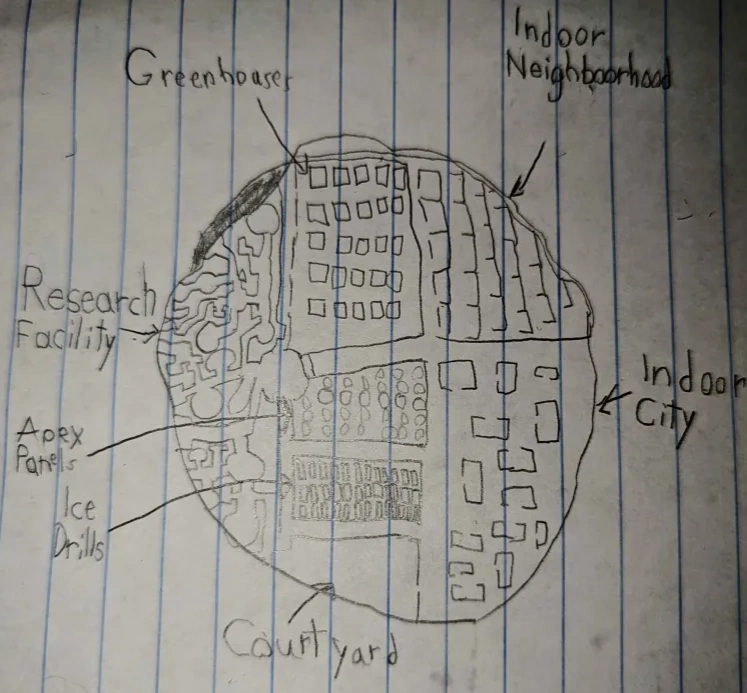 Greenhouses
Indoor
Neighboorhood
Research
Facility
Indoor
City
Apex
Panels
Ice
Drills
Courtyard